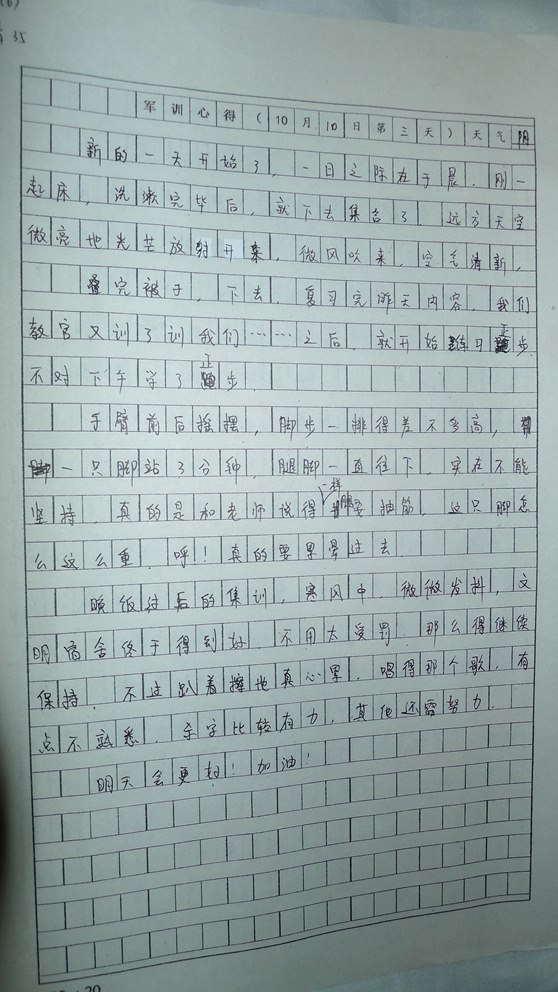 35
军训心得(10月10日第三天)天气阴
新的一天开始了,一日之际在于晨.刚一
起床,洗漱完毕后,就下去集合了 远方天空
微亮地光芒放射开来,微风吹来,空气清新,
叠完被子,下去,复习完昨天内容,我们
教官又训了训我们……之后,就开始练习正步
不对下午学了正步.
手臂前后摇摆,脚步一排得差不多高,
一只脚站了3分钟,腿脚一直往下,实在不能
坚持,真的是和老师说得一样脚要抽筋,这只脚怎
么这么重.呼!真的要累晕过去
晚饭过后的集训,寒风中,微微发抖,文
明宿舍终于得到好.不用太受罚.那么得继续
保持.不过趴着擦地真心累,唱得那个歌,有
点不熟悉,杀字比较有力,其他还需努力.
明天会更好!加油!
20